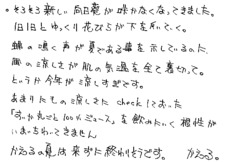 。そろそろ新しい向日葵が咲かなくなってきました。
1日1日とゆっくり花びらが下を向いていく。
蝉の鳴く声が夏である事を示しているのに、
風の涼しさが肌の気温を全て裏切って。
というか今年が涼しすぎです。
あまりにもの涼しさに checkしておった
「すいか丸ごと100%ジュース」を飲みたいく根性が
いまいち出ってきません
かえるの夏は来ずに終わりそうです。 かえる。